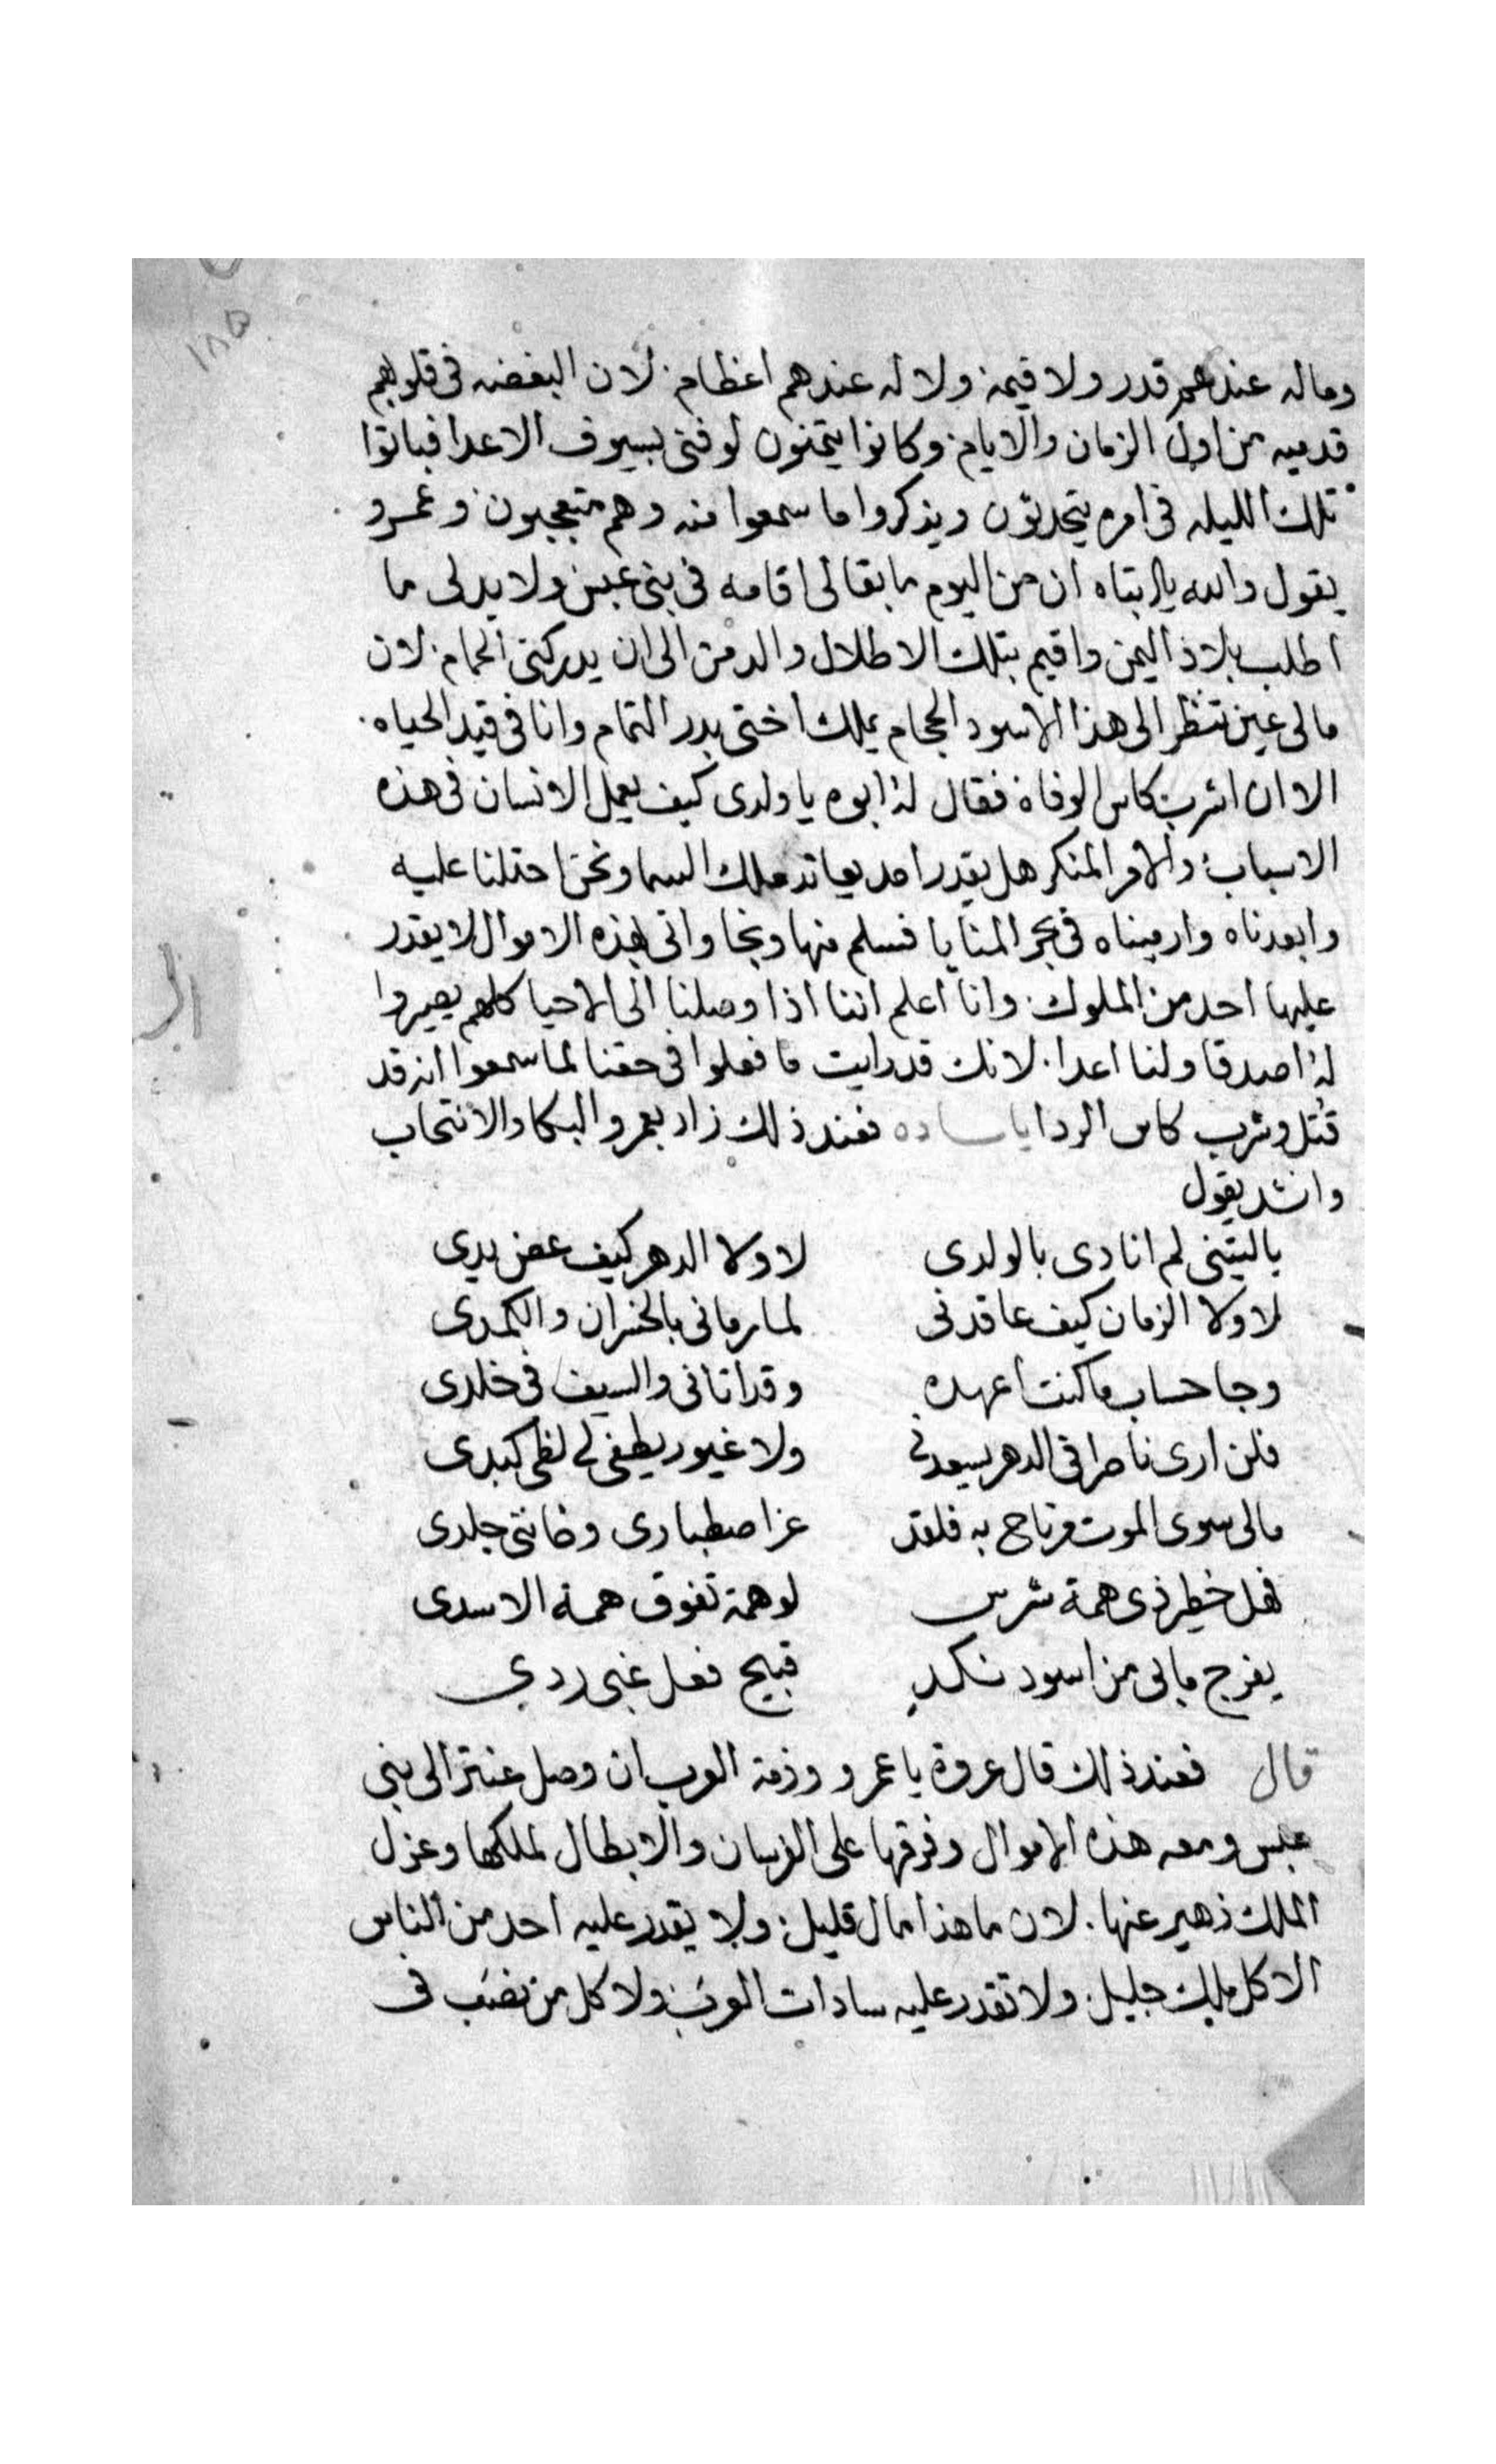 ١٨٥
وماله عندهم قدر ولا قيمة ولا له عندهم اعظام لان البغضه فى قلوبهم
قدميه من اول الزمان والايام وكانوا يتمنون لو فنى بسيوف الاعدا فباتوا
تلك الليله فى امره يتحدثون ويذكروا ما سمعوا منه وهم متعجبون وعمرو
يقول والله يا ابتاه ان من اليوم ما بقا لى اقامه فى بنى عبس ولا بد لى ما
اطلب بلاد اليمن واقيم بتلك الاطلال والدمن الى ان يدركنى الحمام لان
مالى عين تنظر الى هذا الاسود الحجام يملك اختى بدر التمام وانا فى قيد الحياه
الا ان اشرب كاس الوفاة فقال له ابوه يا ولدى كيف يعمل الانسان فى هذه
الاسباب والامر المنكر هل يقدر احد يعاند ملك السما ونحن احتلنا عليه
وابعدناه وارميناه فى بحر المنايا فسلم منها ونجا واتى بهذه الاموال لا يقدر
عليها احد من الملوك وانا اعلم اننا اذا وصلنا الى الاحيا كلهم يصيروا
له اصدقا ولنا اعدا لانك قد رايت ما فعلوا فى حقنا لما سمعوا انه قد
قتل وشرب كاس الردا يا ساده فعند ذلك زاد بعمرو البكا والانتحاب
وانشد يقول
ياليتنى لم انادى بالولدى لا ولا الدهر كيف عض يدى
لا ولا الزمان كيف عاقدنى لما رمانى بالخسران والكمدى
وجا حساب ما كنت اعهده وقد اتانى والسيف فى خلدى
فلن ارى ناصرا فى الدهر يسعدنى ولا غيور يطفى لى لظى كبدى
مالى سوى الموت مرتاح به فلقد عز اصطبارى وخاننى جلدى
فهل خطير ذى همة شرس لو همة تفوق همة الاسدى
يفرج ما بى من اسود نكد قبيح فعل غبى ردي
قال فعند ذلك قال عروة يا عمرو وذمة العرب ان وصل عنتر الى بنى
عبس ومعه هذه الاموال وفرقها على الفرسان والابطال لملكها وعزل
الملك زهير عنها لان ما هذا مال قليل ولا يقدر عليه احد من الناس
الا كل ملك جليل ولا تقدر عليه سادات العرب ولا كل من نصب فى